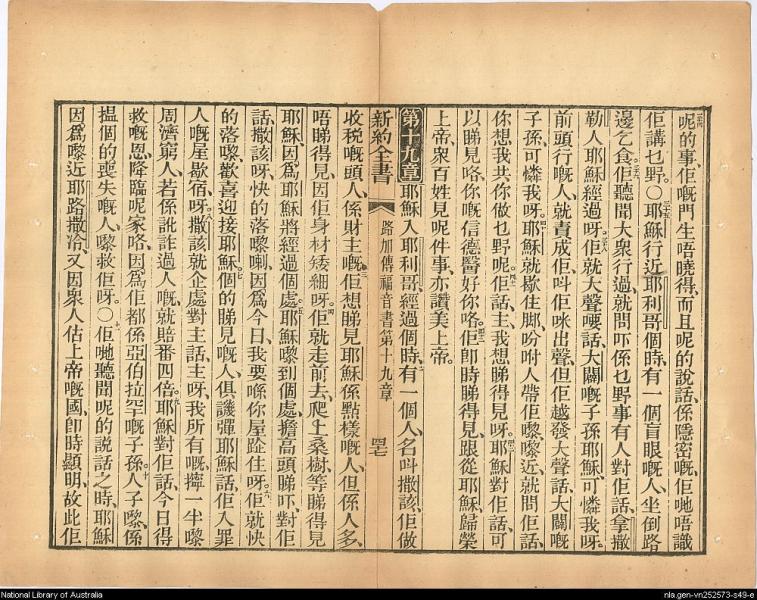 呢的事、佢嘅門生唔曉得、而且呢的說話、係隱密嘅、佢哋唔識
佢講乜野。○耶穌行近耶利哥個時、有一個盲眼嘅人、坐倒路
邊乞食、佢聽聞大衆行過、就問吓係乜野事、有人對佢話、拿撒
勒人耶穌經過呀。佢就大聲嗌話、大闢嘅子孫耶穌、可憐我呀。
前頭行嘅人、就責成佢呌佢咪出聲、但佢越發大聲話、大闢嘅
子孫、可憐我呀。耶穌就歇住脚、吩咐人帶佢嚟、嚟近、就問佢話、
你想我共你做乜野呢。佢話、主、我想睇得見呀。耶穌對佢話、可
以睇見咯、你嘅信德醫好你咯。佢卽時睇得見、跟從耶穌、歸榮
上帝、衆百姓見呢件事、亦讚美上帝。
第十九章 耶穌入耶利哥、經過個時、有一個人、名呌撒該、佢做
新約全書 路加傳福音書第十九章
收税嘅頭人、係財主嘅。佢想睇見耶穌係點樣嘅人、但係人多、
唔睇得見、因佢身材矮細呀。佢就走前去、爬上桑樹、等睇得見
耶穌、因爲耶穌將經過個處。耶穌嚟到個處、擔高頭睇吓、對佢
話、撒該呀、快的落嚟喇、因爲今日、我要喺你屋跧住呀。佢就快
的落嚟、歡喜迎接耶穌。個的睇見嘅人、俱譏彈耶穌話、佢入罪
人嘅屋歇宿呀。撒該就企處對主話、主呀、我所有嘅、擰一半嚟
周濟窮人、若係訛詐過人嘅、就賠番四倍。耶穌對佢話、今日得
救嘅恩、降臨呢家咯、因爲佢都係亞伯拉罕嘅子孫。人子嚟、係
揾個的喪失嘅人、嚟救佢呀。○佢哋聽聞呢的說話之時、耶穌
因爲嚟近耶路撒冷、又因衆人估上帝嘅國、卽時顯明、故此佢
National Library of Australia
nla.gen-vn252573-s49-e